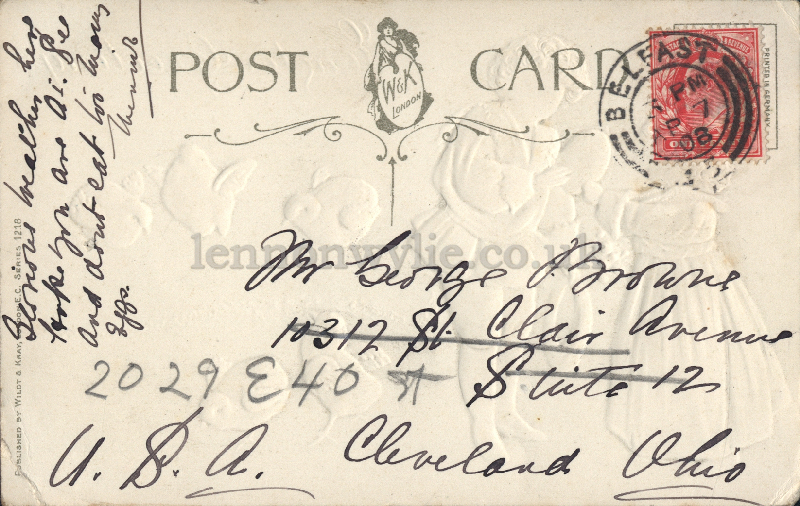 POST CARD
W&K
LONDON
PRINTED IN GERMANY
BELFAST
PM
7
08
1
Glorious weather here
hope you are A1. See
and dont eat too many
Eggs.
Mr George Browne
10312 St. Clair Avenue
Suite 12
2029 E 40 st
Cleveland Ohio
U. S. A.
PUBLISHED BY WILDT & KRAY, LONDON E.C. SERIES 1218
lennonwylie.co.uk